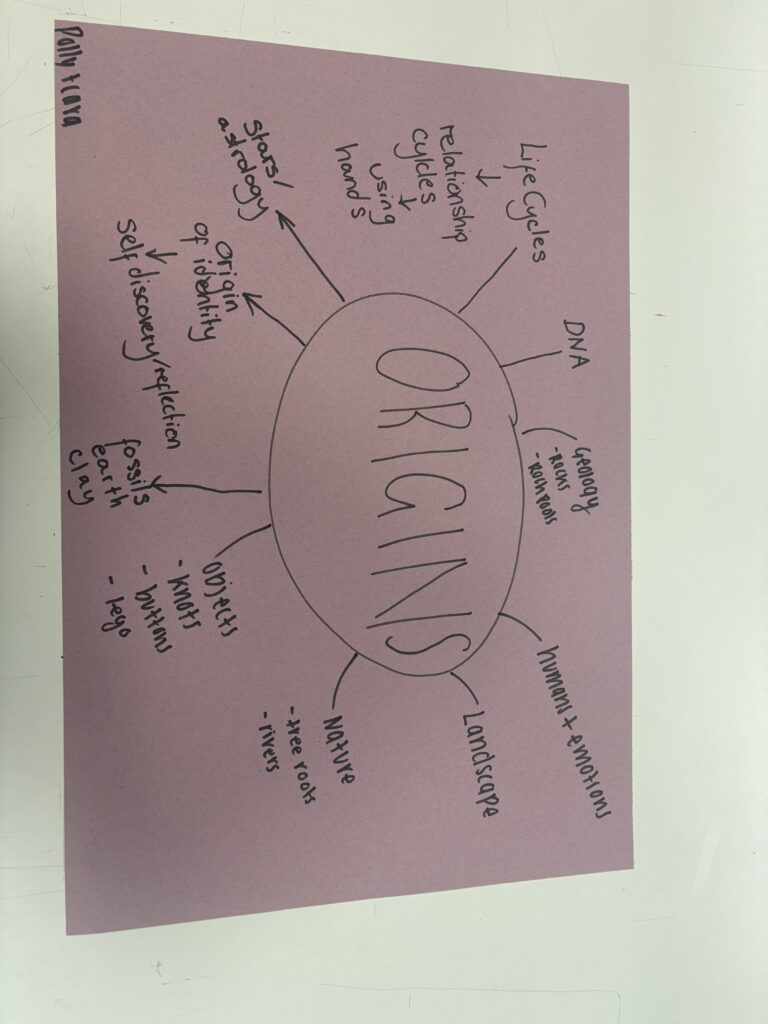 ORIGINS
Life Cycles
relationship
cycles
using
hands
DNA
Geology
- Rocks
- Rock Pools
humans + emotions
Landscape
Nature
- tree roots
- rivers
objects
- knots
- buttons
- lego
fossils
earth
clay
origin
of identity
self discovery/reflection
stars/
astrology